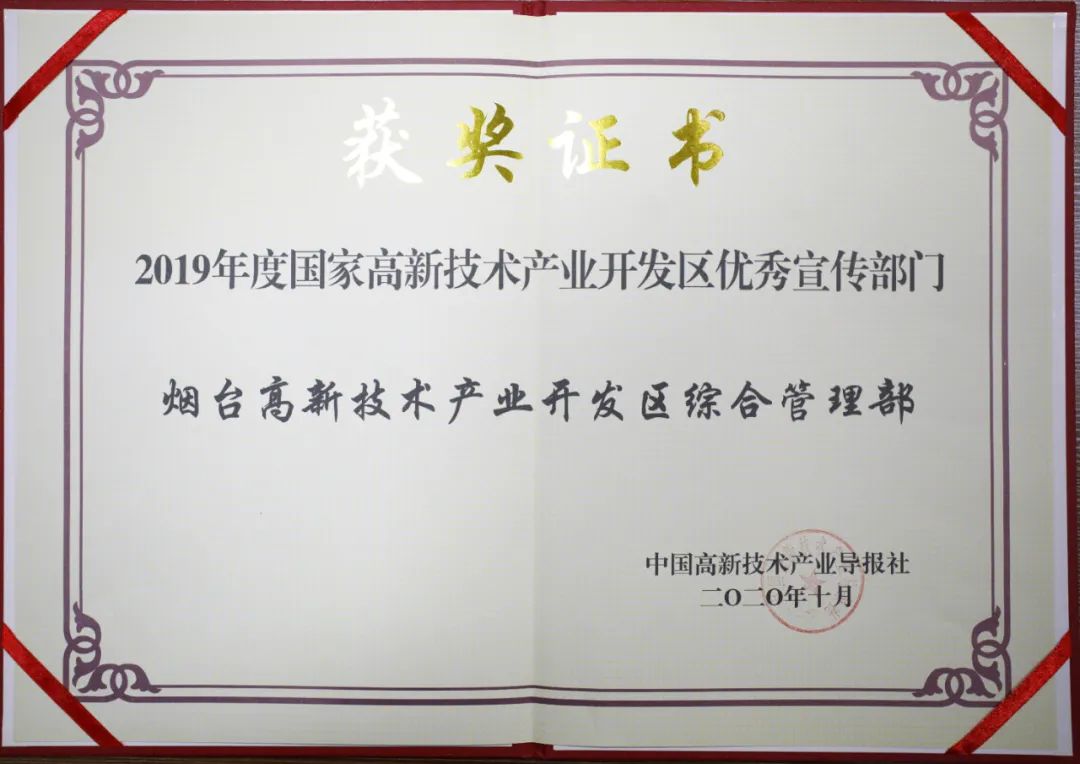 获奖证书
2019年度国家高新技术产业开发区优秀宣传部门
烟台高新技术产业开发区综合管理部
中国高新技术产业导报社
二〇二〇年十月